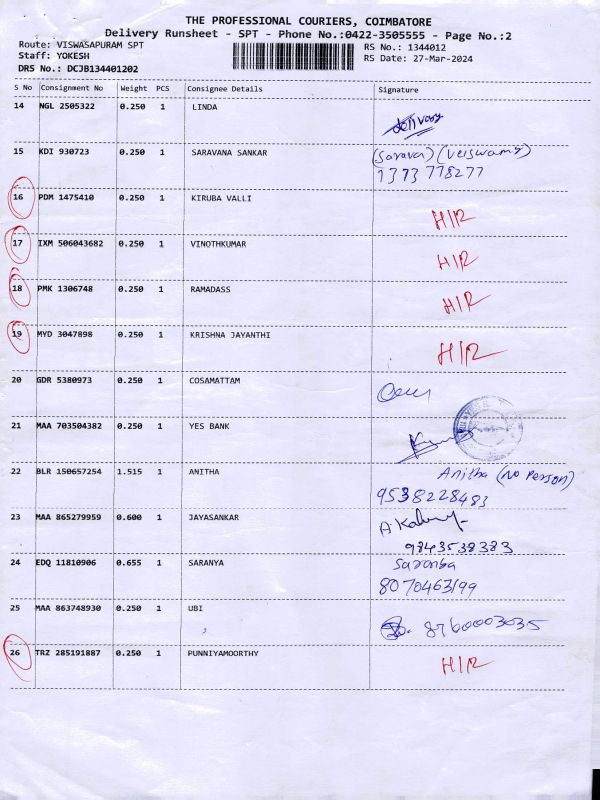 THE PROFESSIONAL COURIERS, COIMBATORE
Delivery Runsheet - SPT - Phone No.:0422-3505555 - Page No.:2
Route: VISWASAPURAM SPT RS No.: 1344012
Staff: YOKESH RS Date: 27-Mar-2024
DRS No.: DCJB134401202
S No Consignment No Weight PCS Consignee Details Signature
14 NGL 2505322 0.250 1 LINDA delivery
15 KDI 930723 0.250 1 SARAVANA SANKAR
16 PDM 1475410 0.250 1 KIRUBA VALLI H/R
17 IXM 506043682 0.250 1 VINOTHKUMAR H/R
18 PMK 1306748 0.250 1 RAMADASS H/R
19 MYD 3047898 0.250 1 KRISHNA JAYANTHI H/R
20 GDR 5380973 0.250 1 COSAMATTAM
21 MAA 703504382 0.250 1 YES BANK
22 BLR 150657254 1.515 1 ANITHA Anitha (No Person)
9538228483
23 MAA 865279959 0.600 1 JAYASANKAR
9843538383
24 EDQ 11810906 0.655 1 SARANYA
8070463199
25 MAA 863748930 0.250 1 UBI 8760003035
26 TRZ 285191887 0.250 1 PUNNIYAMOORTHY H/R